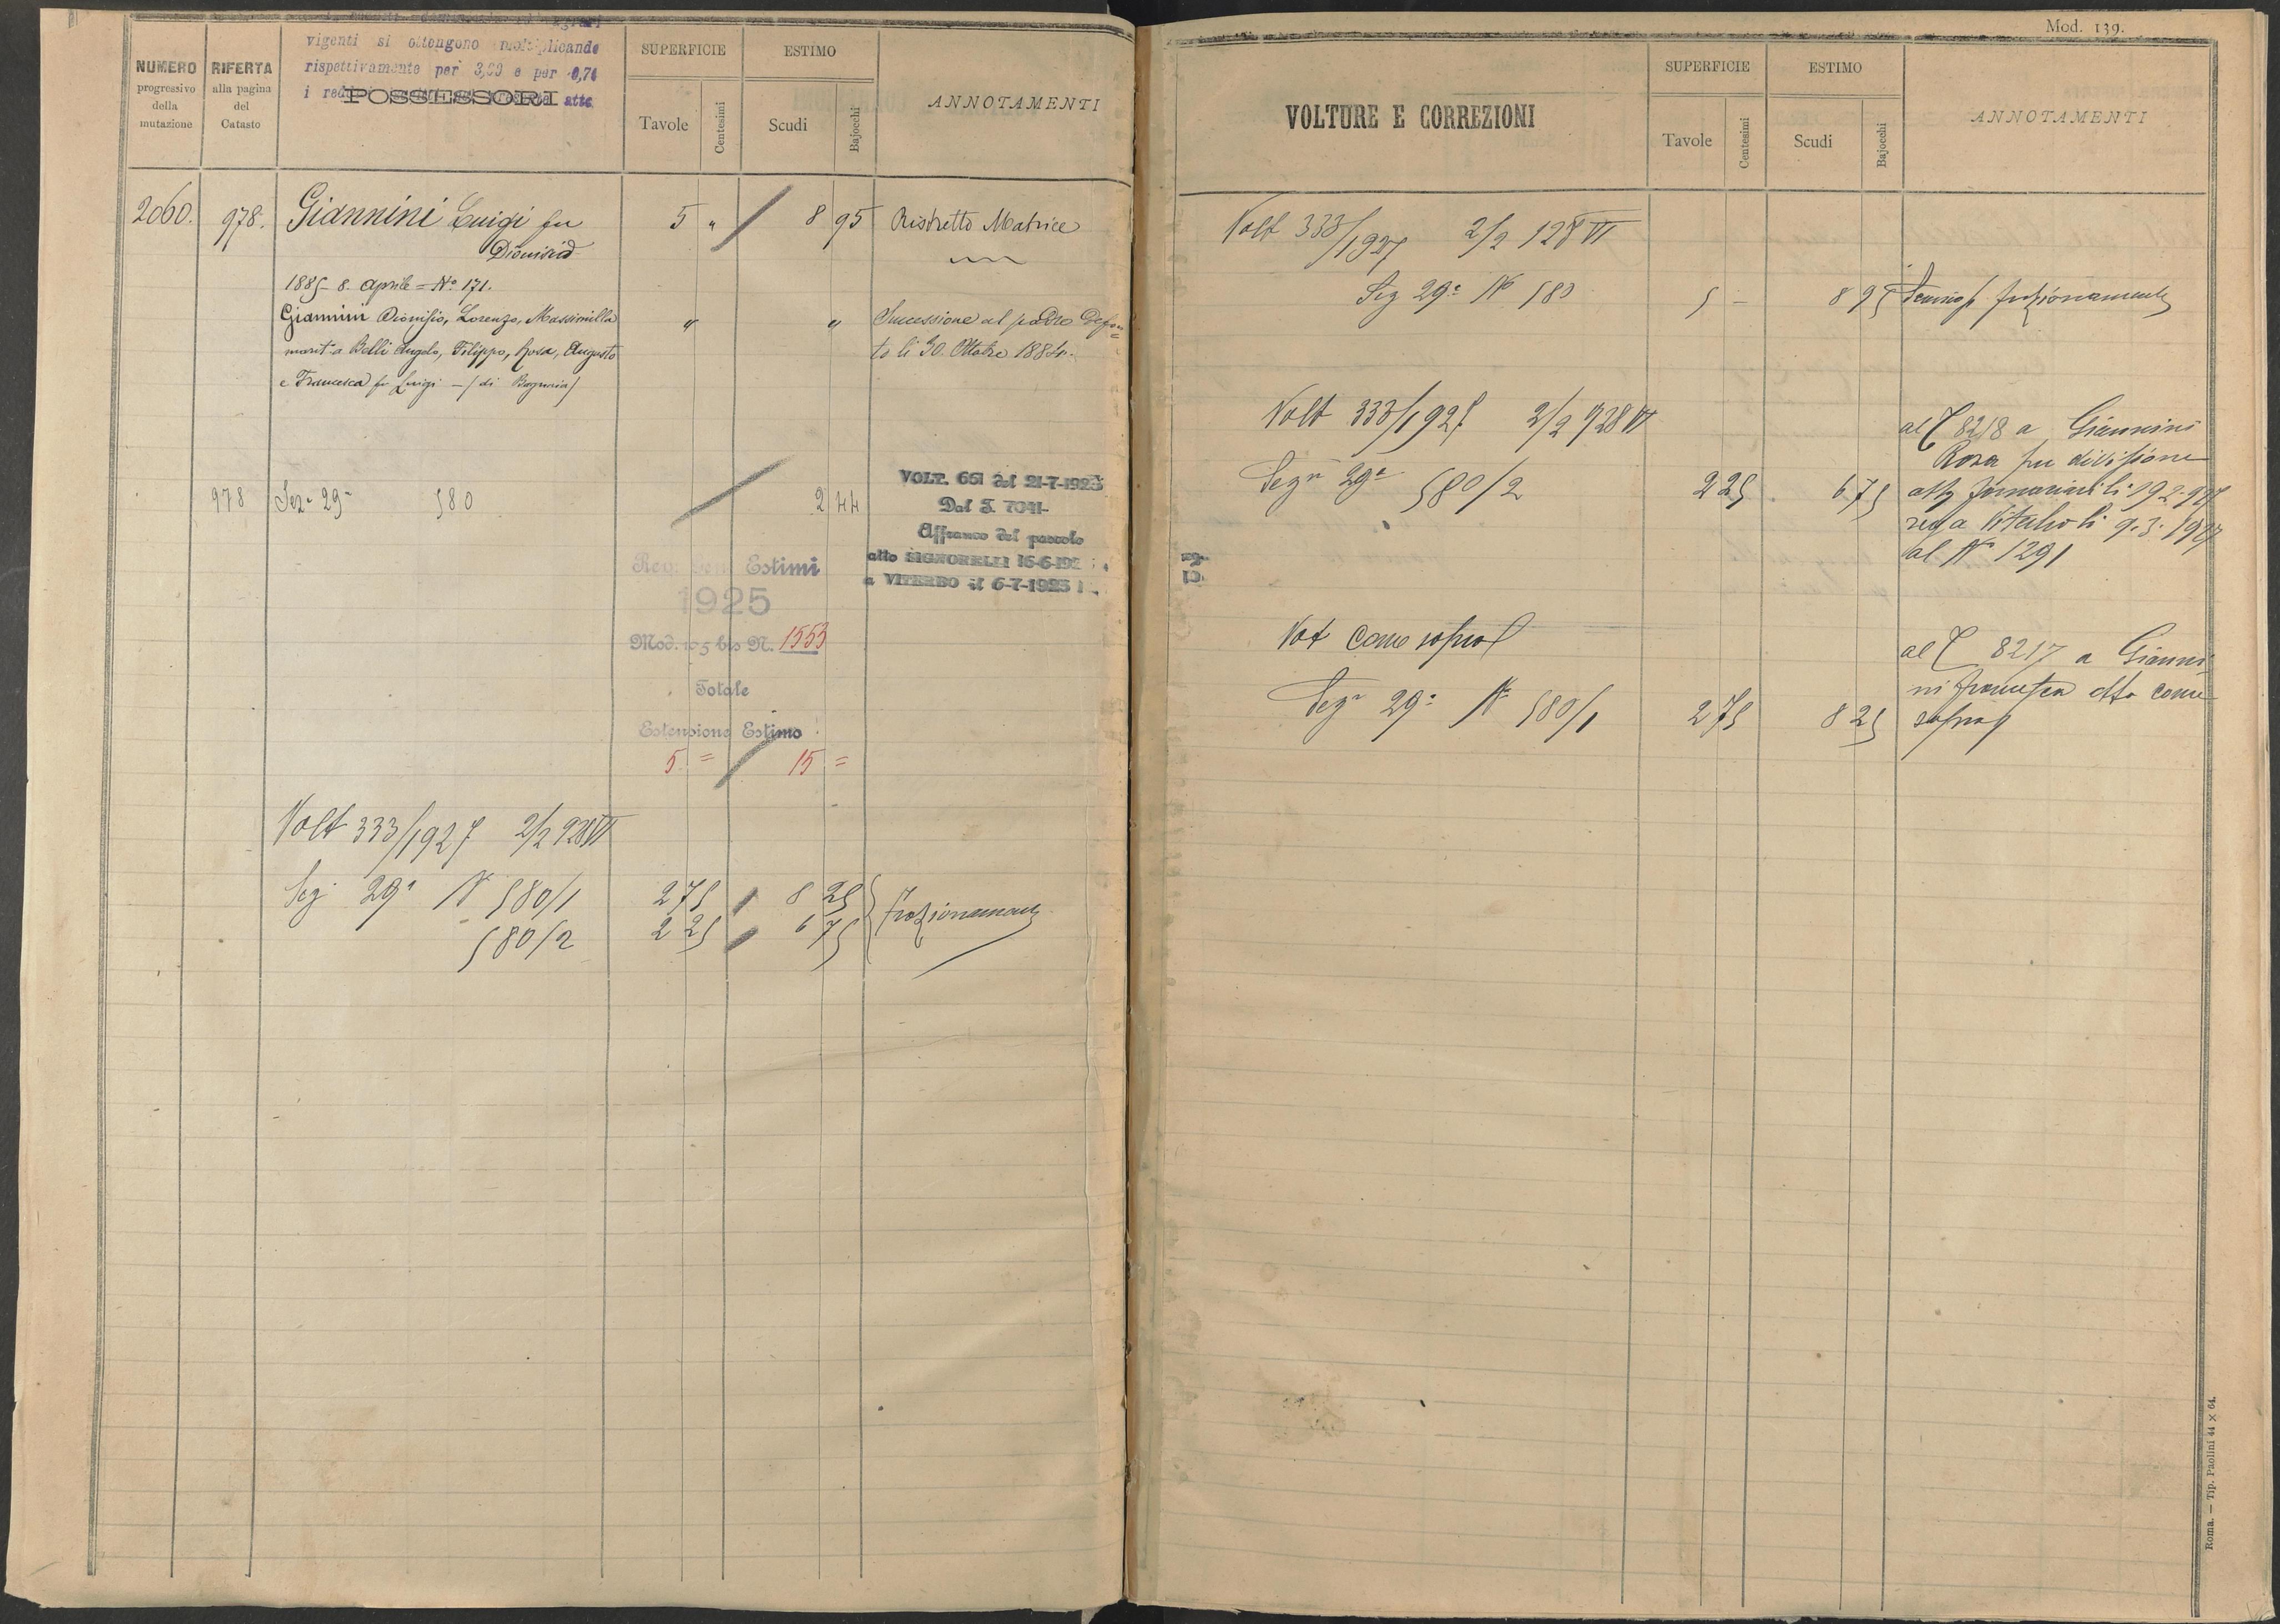 vigenti si ottengono moltiplicando
rispettivamente per 3,00 e per 0,74
POSSESSORI
NUMERO
progressivo
della
mutazione
RIFERTA
alla pagina
del
Catasto
SUPERFICIE
Tavole
Centesimi
ESTIMO
Scudi
Bajocchi
ANNOTAMENTI
2060. 978. Giannini Luigi fu 5 " 8 95 Ristretto Matrice
Dionisio
1885 8. Aprile = N.º 171.
Giannini Dionisio, Lorenzo, Massimilla " " Successione al padre defun
marit.a Belli Angelo, Filippo, Rosa, Augusto to li 30. Ottobre 1884.
e Francesca fu Luigi - (di Bagnaia)
VOLT. 651 del 21-7-1925
978 Sez. 29ª 580 2 44 Dal T. 7041-
Affranco del pascolo
atto SIGNORELLI 16-6-192
a VITERBO il 6-7-1925
Rev. Gen. Estimi
1925
Mod. 105 bis N. 1553
Totale
Estensione Estimo
5 = 15 =
Volt 333/1927 2/2 928 VI
Sez 29ª N 580/1 2 75 8 25 frazionamento
580/2 2 25 6 75
Mod. 139.
VOLTURE E CORREZIONI
SUPERFICIE
Tavole
Centesimi
ESTIMO
Scudi
Bajocchi
ANNOTAMENTI
Volt 333/1927 2/2 128 VI
Sez 29ª N 580 5 - 8 95 frazionamento
Volt 333/1927 2/2 928 VI al T 8218 a Giannini
Rosa per divisione
Sezn 29ª 580/2 2 25 6 75 19.2.927
reg a Viterbo li 9.3.1927
al Nº 1291
Vot come sopra al T 8217 a Gianni
ni Francesca atto come
Sezn 29ª N 580/1 2 75 8 25 sopra
Roma. — Tip. Paolini 44 × 64.